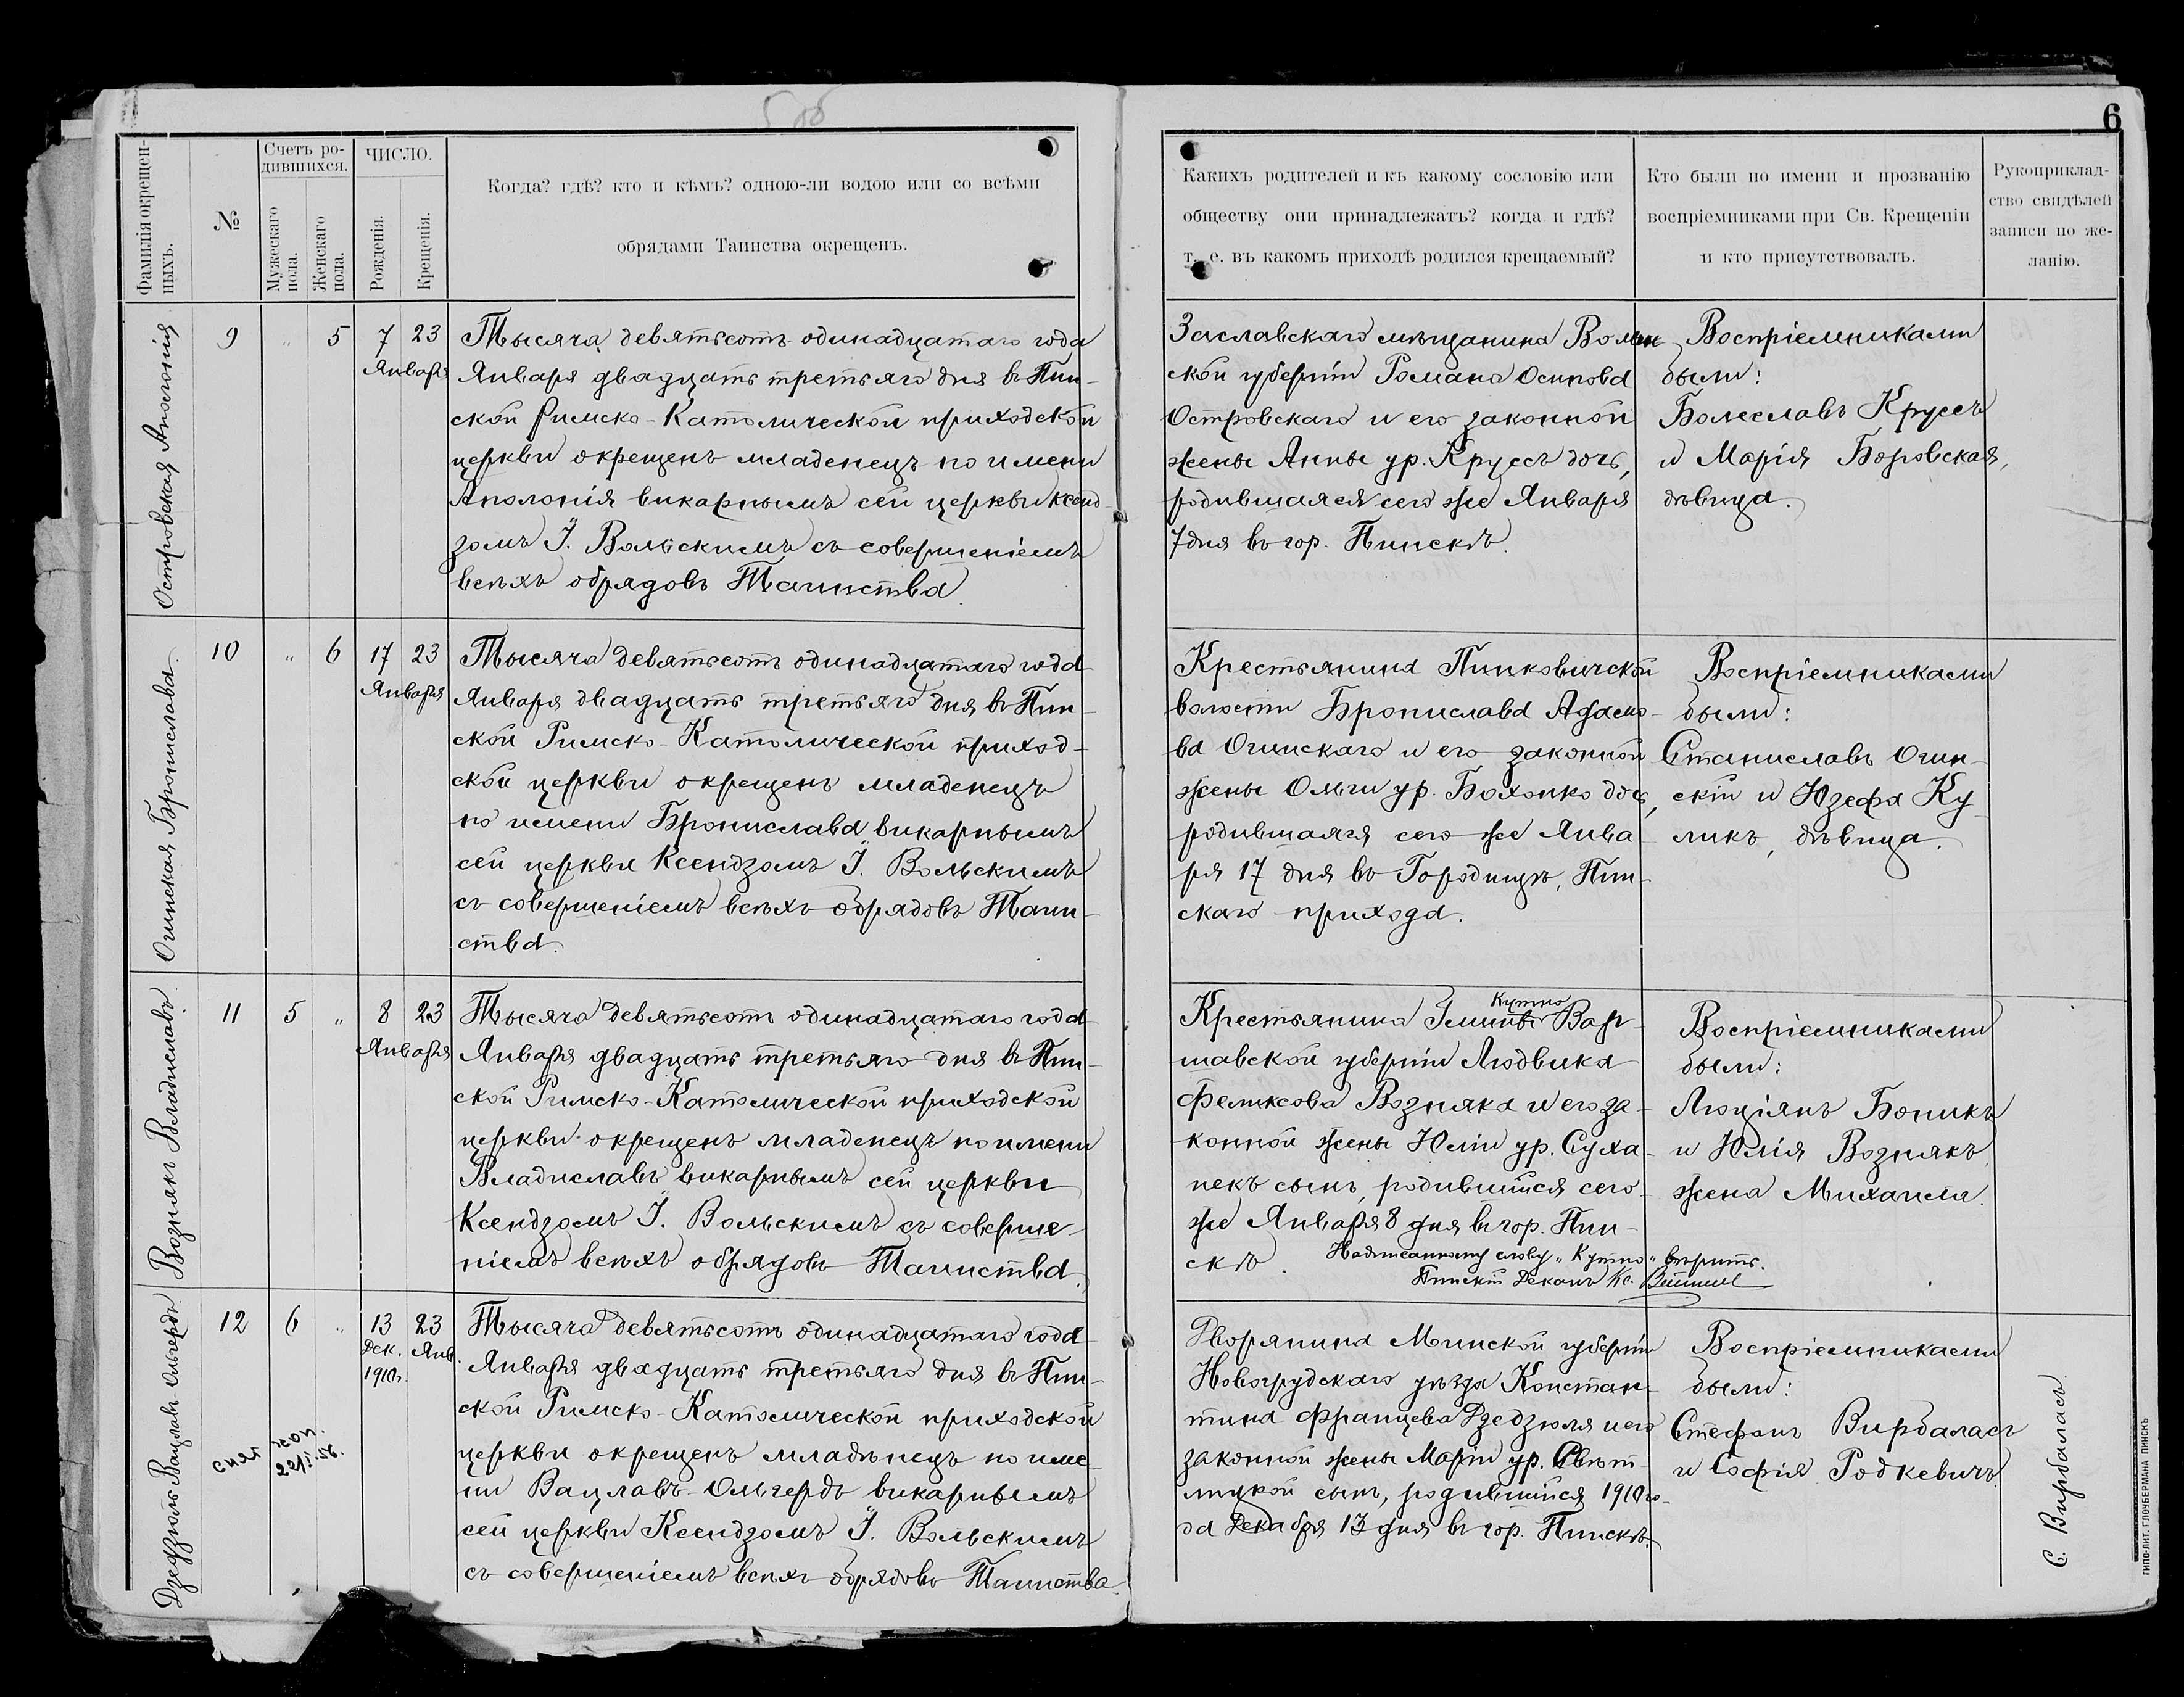 6
Фамилія окрещен-
ныхъ.
№
Счетъ ро-
дившихся.
Мужескаго
пола.
Женскаго
пола.
ЧИСЛО.
Рожденія.
Крещенія.
Когда? гдѣ? кто и кѣмъ? одною-ли водою или со всѣми
обрядами Таинства окрещенъ.
Какихъ родителей и къ какому сословію или
обществу они принадлежатъ? когда и гдѣ?
т. е. въ какомъ приходѣ родился крещаемый?
Кто были по имени и прозванію
воспріемниками при Св. Крещеніи
и кто присутствовалъ.
Рукоприклад-
ство свидѣлей
записи по же-
ланію.
Островская Аполонія
9 „ 5 7 23
Января
Тысяча девятьсотъ одинадцатаго года
Января двадцать третьяго дня въ Пин-
ской Римско-Католической приходской
церкви окрещенъ младенецъ по имени
Аполонія викарнымъ сей церкви Ксенд-
зомъ І. Вольскимъ съ совершеніемъ
всѣхъ обрядовъ Таинства.
Заславскаго мѣщанина Волын-
ской губерніи Романа Осипова
Островскаго и его законной
жены Анны ур. Круссъ дочь,
родившаяся сего же Января
7 дня въ гор. Пинскѣ.
Воспріемниками
были:
Болеславъ Круссъ
и Марія Боровская,
дѣвица.
Огинская Бронислава.
10 „ 6 17 23
Января
Тысяча девятьсотъ одинадцатаго года
Января двадцать третьяго дня въ Пин-
ской Римско-Католической приход-
ской церкви окрещенъ младенецъ
по имени Бронислава викарнымъ
сей церкви Ксендзомъ І. Вольскимъ
съ совершеніемъ всѣхъ обрядовъ Таин-
ства.
Крестьянина Пинковичской
волости Бронислава Адамо-
ва Огинскаго и его законной
жены Ольги ур. Бохонко дочь,
родившаяся сего же Янва-
ря 17 дня въ Городищѣ, Пин-
скаго прихода.
Воспріемниками
были:
Станиславъ Огин-
скій и Юзефа Ку-
ликъ, дѣвица.
Вознякъ Владиславъ.
11 5 „ 8 23
Января
Тысяча девятьсотъ одинадцатаго года
Января двадцать третьяго дня въ Пин-
ской Римско-Католической приходской
церкви окрещенъ младенецъ по имени
Владиславъ викарнымъ сей церкви
Ксендзомъ І. Вольскимъ съ соверше-
ніемъ всѣхъ обрядовъ Таинства.
Кутно
Крестьянина Гмины Вар-
шавской губерніи Людвика
Феликсова Возняка и его за-
конной жены Юліи ур. Суха-
некъ сынъ, родившійся сего
же Января 8 дня въ гор. Пин-
скѣ.
Надписанному слову „Кутно" вѣрить.
Пинскій Деканъ Кс.
Воспріемниками
были:
Люціянъ Боникъ
и Юлія Вознякъ
жена Михаила.
Дзедзюль Вацлавъ Ольгердъ
12 6 „ 13 23
Дек. Янв.
1910 г.
22/I.56.
Тысяча девятьсотъ одинадцатаго года
Января двадцать третьяго дня въ Пин-
ской Римско-Католической приходской
церкви окрещенъ младѣнецъ по име-
ни Вацлавъ-Ольгердъ викарнымъ
сей церкви Ксендзомъ І. Вольскимъ
съ совершеніемъ всѣхъ обрядовъ Таинства.
Дворянина Минской губерніи
Новогрудскаго уѣзда Констан-
тина Францева Дзедзюля и его
законной жены Маріи ур. Свѣт-
лицкой сынъ, родившійся 1910 го-
да Декабря 13 дня въ гор. Пинскѣ.
Воспріемниками
были:
Стефанъ Вирбаласъ
и Софія Родкевичъ.
С. Вирбаласъ
ТИПО-ЛИТ. ГЛОУБЕРМАНА ПИНСКЪ